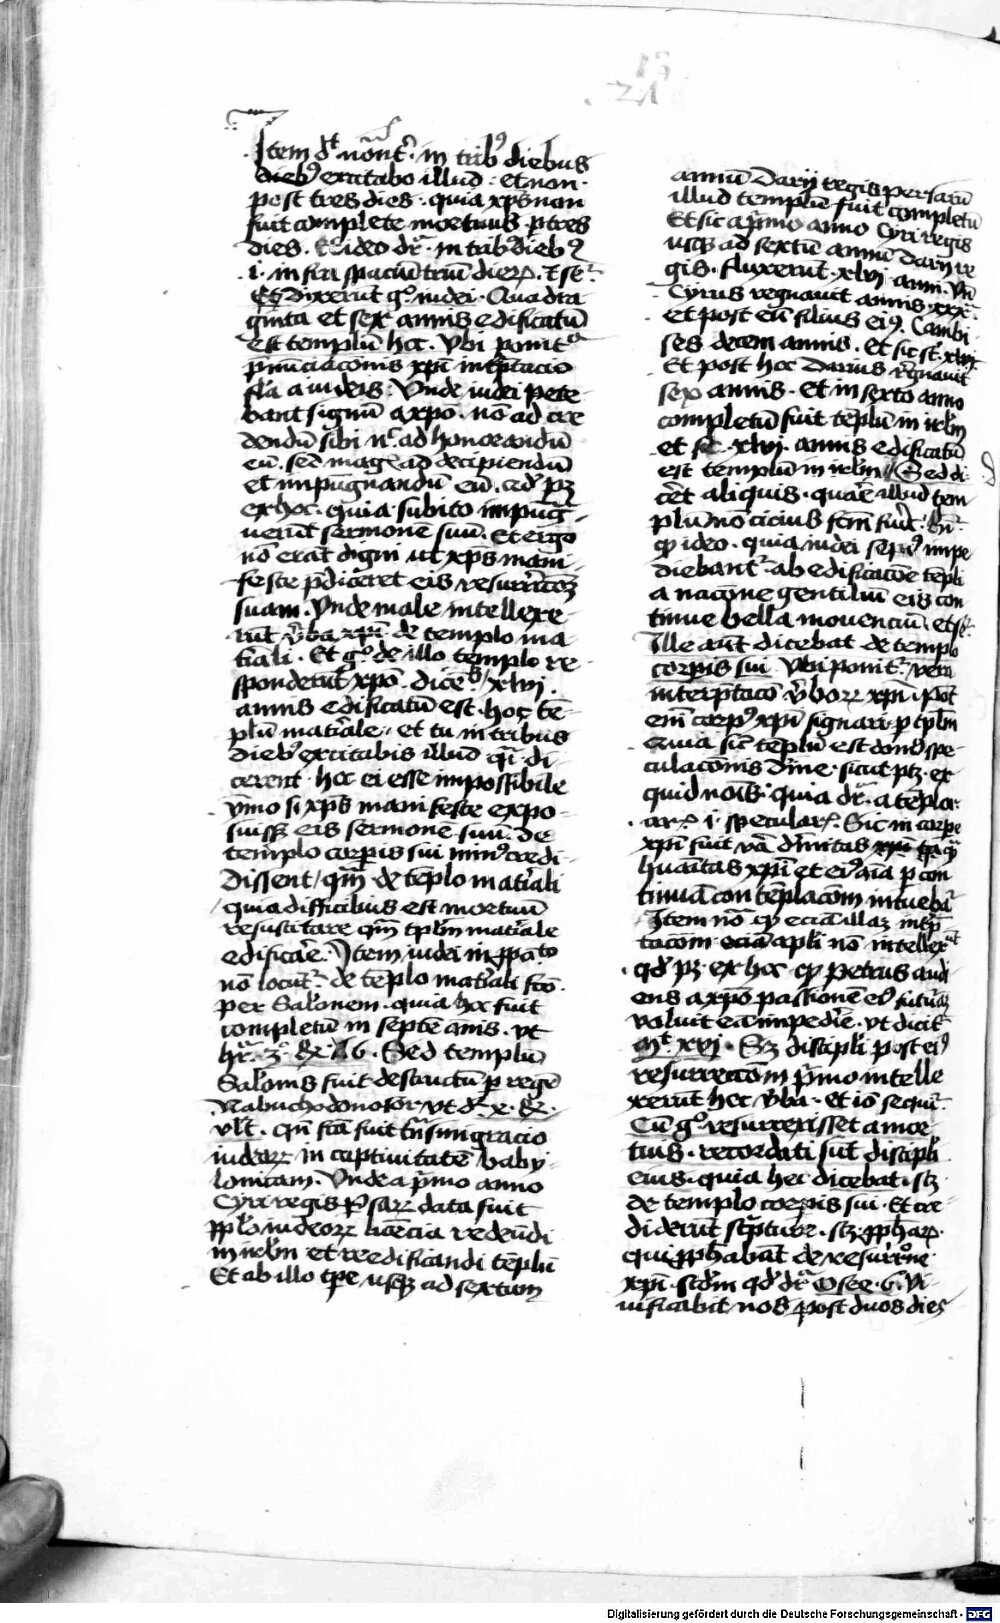 Item dt nōntʳ. in tribꝰ diebus
diebꝰ excitabo illud. et non
post tres dies. quia xp̄s non
fuit complete mortuus ꝑ tres
dies. Et ideo dr̄. in tribꝰ diebꝰ
.i. infra spaciū triū dierꝝ.
Et Dixerūt gͦ iudei. Quadra
ginta et sex annis edificatū
est templū hoc. Vbi ponitʳ
p̄nūciacionis xp̄i int̄ptacio
fc̄a a iudeis. Vnde iudei pete
bant signū a xpō. nō ad cre
dendū sibi nͨ ad honorandū
eū. sed magꝭ ad decipiendū
et impugnandū eū. qd̄ pꝫ
ex hoc. quia subito impug
nauerūt sermonē suū. et ergo
nō erāt digni ut xp̄s mani
feste p̄diceret eis resurrēcōꝫ
suam. Vnde male intellexe
rūt v̄ba xp̄i. de templo ma
t̄iali. Et gͦ de illo templo re
sponderūt xpō. dicētꝭ / xlvi.
annis edificatū est hoc tē
plū mat̄iale. et tu in tribus
diebꝰ excitabis illud q̄i di
cerent hoc ei esse impossibile
ymo si xp̄s manifeste expo
suissꝫ eis sermonē suū. de
templo corꝑis sui minꝰ credi
dissent / qm̄ de tēplo mat̄iali
quia difficilius est mortuū
resuscitare qm̄ tp̄lm mat̄iale
edificar̄e. Item iudei in ꝓpōito
nō locutʳ. de tēplo mat̄iali fcō.
per Salomonem. quia hoc fuit
completū in septē ānis. vt
hr̄. 3ͦ. Rͤ. 6. Sed templū
Salomōis fuit destructū ꝑ regē
Nabuchodonosor. vt dr̄. Rͤ.
vlt. qn̄ fc̄a fuit tn̄smigracio
iudeorꝝ in captiuitatē baby
lonicam. Vnde a p̄mo anno
Cyri regis ꝑsarꝝ data fuit
ppl̄o iudeorꝝ licēcia redeūdi
in irl̄m et reedificandi tēplū
Et ab illo tp̄e usqꝫ ad sextum
annū Darij regis persarū
illud templū fuit completū
Et sic a p̄mo anno Cyri regis
usqꝫ ad sextū annū darij re
gis. fluxerūt. xlvi. anni. Vn̄
Cyrus regnauit annis. xxx.
et post eū filius eiꝰ. Cambi
ses decem annis. et sic st̄ xlvi
Et post hoc Darius regnauit
sex annis. Et in sexto anno
completū fuit tēplū in irl̄m
et sic. xlvi. annis edificatū
est templū in irl̄m. Sed di
ceret aliquis. quar̄e illud tem
plū nō cicius fcm̄ fuit. Rn̄.
qͦ ideo. quia iudei sepiꝰ impe
diebantʳ. ab edificacōe tēpli
a nacōne gentiliū eis con
tinue bella mouenciū. et sͨ.
Ille aūt dicebat de templo
corꝑis sui. Vbi ponitʳ. vera
interp̄tacō v̄borꝝ xp̄i. pot
em̄ corpꝰ xp̄i signari ꝑ tp̄lm
Quia sic̄ tēplū est domꝰ spe
culacōnis diuīe. sicut pꝫ ex
quid nōīs. quia dr̄. a tēplor
arꝭ .i. speculorꝭ. Sic in corꝑe
xp̄i fuit v̄a diuinitas
humāitas xp̄i et eiꝰ aīa ꝑ con
tinuā contēplacōm intuebāʳ
Item nō qͦ eciā illaꝫ int̄p
tacōm eciā apl̄i nō intellexerūt
qd̄ pꝫ ex hoc. qͦ Petrus audi
ens a xpō passionē eiꝰ futurā
voluit eā impedir̄e. vt dicitʳ.
Mͭ xvi. Sꝫ discipl̄i post eiꝰ
resurrectōm p̄mo intelle
xerūt hec v̄ba. et iō sequitʳ.
Cū gͦ resurrexisset a mor
tuis. recordati sūt discipl̄i
eius. quia hec dicebat. scꝫ
de templo corꝑis sui. Et cre
diderūt sc̄ptur̄e. scꝫ ꝓph̄arꝝ.
qui ꝓph̄abāt de resurrōne
xp̄i. scd̄m qd̄ dr̄ Osee. 6. Vi
uificabit nos post duos dies